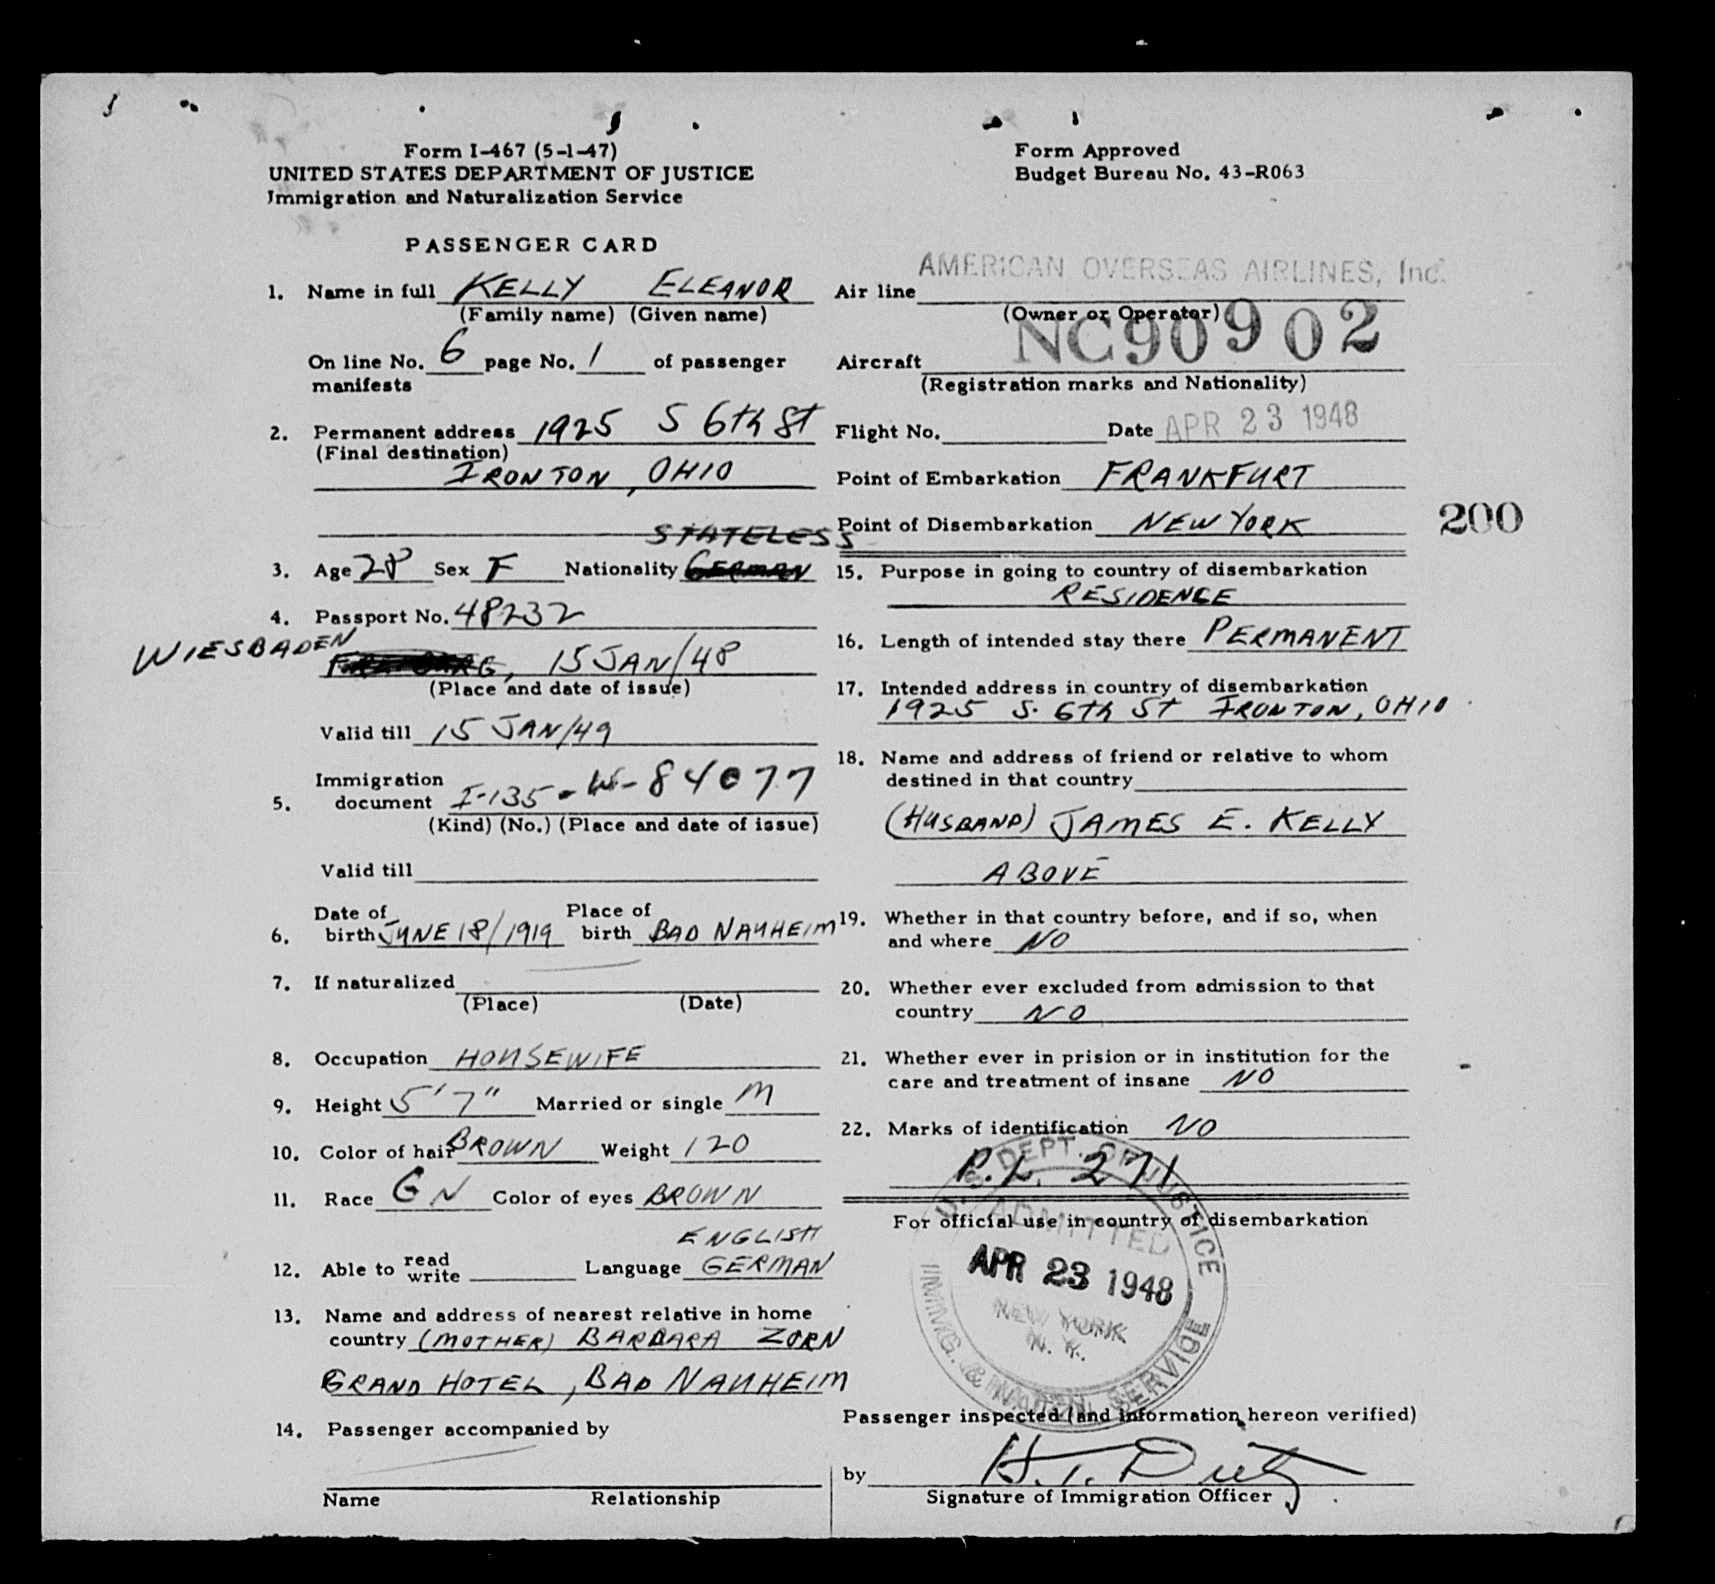 Form I-467 (5-1-47)
UNITED STATES DEPARTMENT OF JUSTICE
Immigration and Naturalization Service
PASSENGER CARD
1. Name in full KELLY ELEANOR
(Family name) (Given name)
On line No. 6 page No. 1 of passenger
manifests
2. Permanent address 1925 S 6th St
(Final destination)
IRONTON, OHIO
STATELESS
3. Age 28 Sex F Nationality GERMAN
4. Passport No. 48232
WIESBADEN
15 JAN/48
(Place and date of issue)
Valid till 15 JAN/49
Immigration
5. document I-135 - W-84077
(Kind) (No.) (Place and date of issue)
Valid till
Date of Place of
6. birth JUNE 18/1919 birth BAD NAUHEIM
7. If naturalized
(Place) (Date)
8. Occupation HOUSEWIFE
9. Height 5' 7" Married or single M
10. Color of hair BROWN Weight 120
11. Race GN Color of eyes BROWN
ENGLISH
12. Able to read write Language GERMAN
13. Name and address of nearest relative in home
country (MOTHER) BARBARA ZORN
GRAND HOTEL, BAD NAUHEIM
14. Passenger accompanied by
Name Relationship
Form Approved
Budget Bureau No. 43-R063
AMERICAN OVERSEAS AIRLINES, Inc.
Air line
(Owner or Operator)
Aircraft NC90902
(Registration marks and Nationality)
Flight No. Date APR 23 1948
Point of Embarkation FRANKFURT
Point of Disembarkation NEW YORK
200
15. Purpose in going to country of disembarkation
RESIDENCE
16. Length of intended stay there PERMANENT
17. Intended address in country of disembarkation
1925 S. 6th St IRONTON, OHIO
18. Name and address of friend or relative to whom
destined in that country
(HUSBAND) JAMES E. KELLY
ABOVE
19. Whether in that country before, and if so, when
and where NO
20. Whether ever excluded from admission to that
country NO
21. Whether ever in prision or in institution for the
care and treatment of insane NO
22. Marks of identification NO
P.L. 271
For official use in country of disembarkation
U.S. DEPT. OF JUSTICE
ADMITTED
APR 23 1948
NEW YORK
N. Y.
IMMIG. & NATZN. SERVICE
Passenger inspected (and information hereon verified)
by
Signature of Immigration Officer